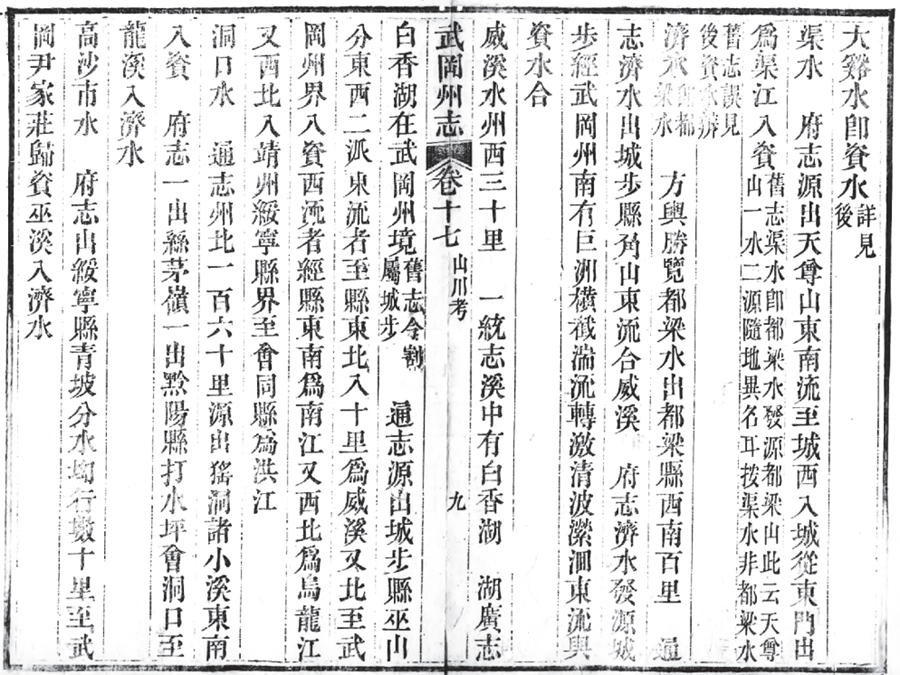 大谿水卽資水詳見後
渠水　府志源出天尊山東南流至城西入城從東門出
爲渠江入資舊志渠水卽都梁水發源都梁山此云天尊山一水二源隨地異名耳按渠水非都梁水
舊志誤見後資水辨
濟水卽都梁水　方輿勝覽都梁水出都梁縣西南百里　通
志濟水出城步縣角山東流合威溪　府志濟水發源城
步經武岡州南有巨洲橫截湍流轉激清波瀠洄東流與
資水合
威溪水州西三十里　一統志溪中有白香湖　湖廣志
武岡州志　卷十七　山川考　九
白香湖在武岡州境舊志今割屬城步　通志源出城步縣巫山
分東西二派東流者至縣東北入十里爲威溪又北至武
岡州界入資西流者經縣東南爲南江又西北爲烏龍江
又西北入靖州綏寧縣界至會同縣爲洪江
洞口水　通志州北一百六十里源出猺洞諸小溪東南
入資　府志一出縣茅嶺一出黔陽縣打水坪會洞口至
龍溪入濟水
高沙市水　府志出綏寧縣青坡分水均行數十里至武
岡尹家莊歸資巫溪入濟水